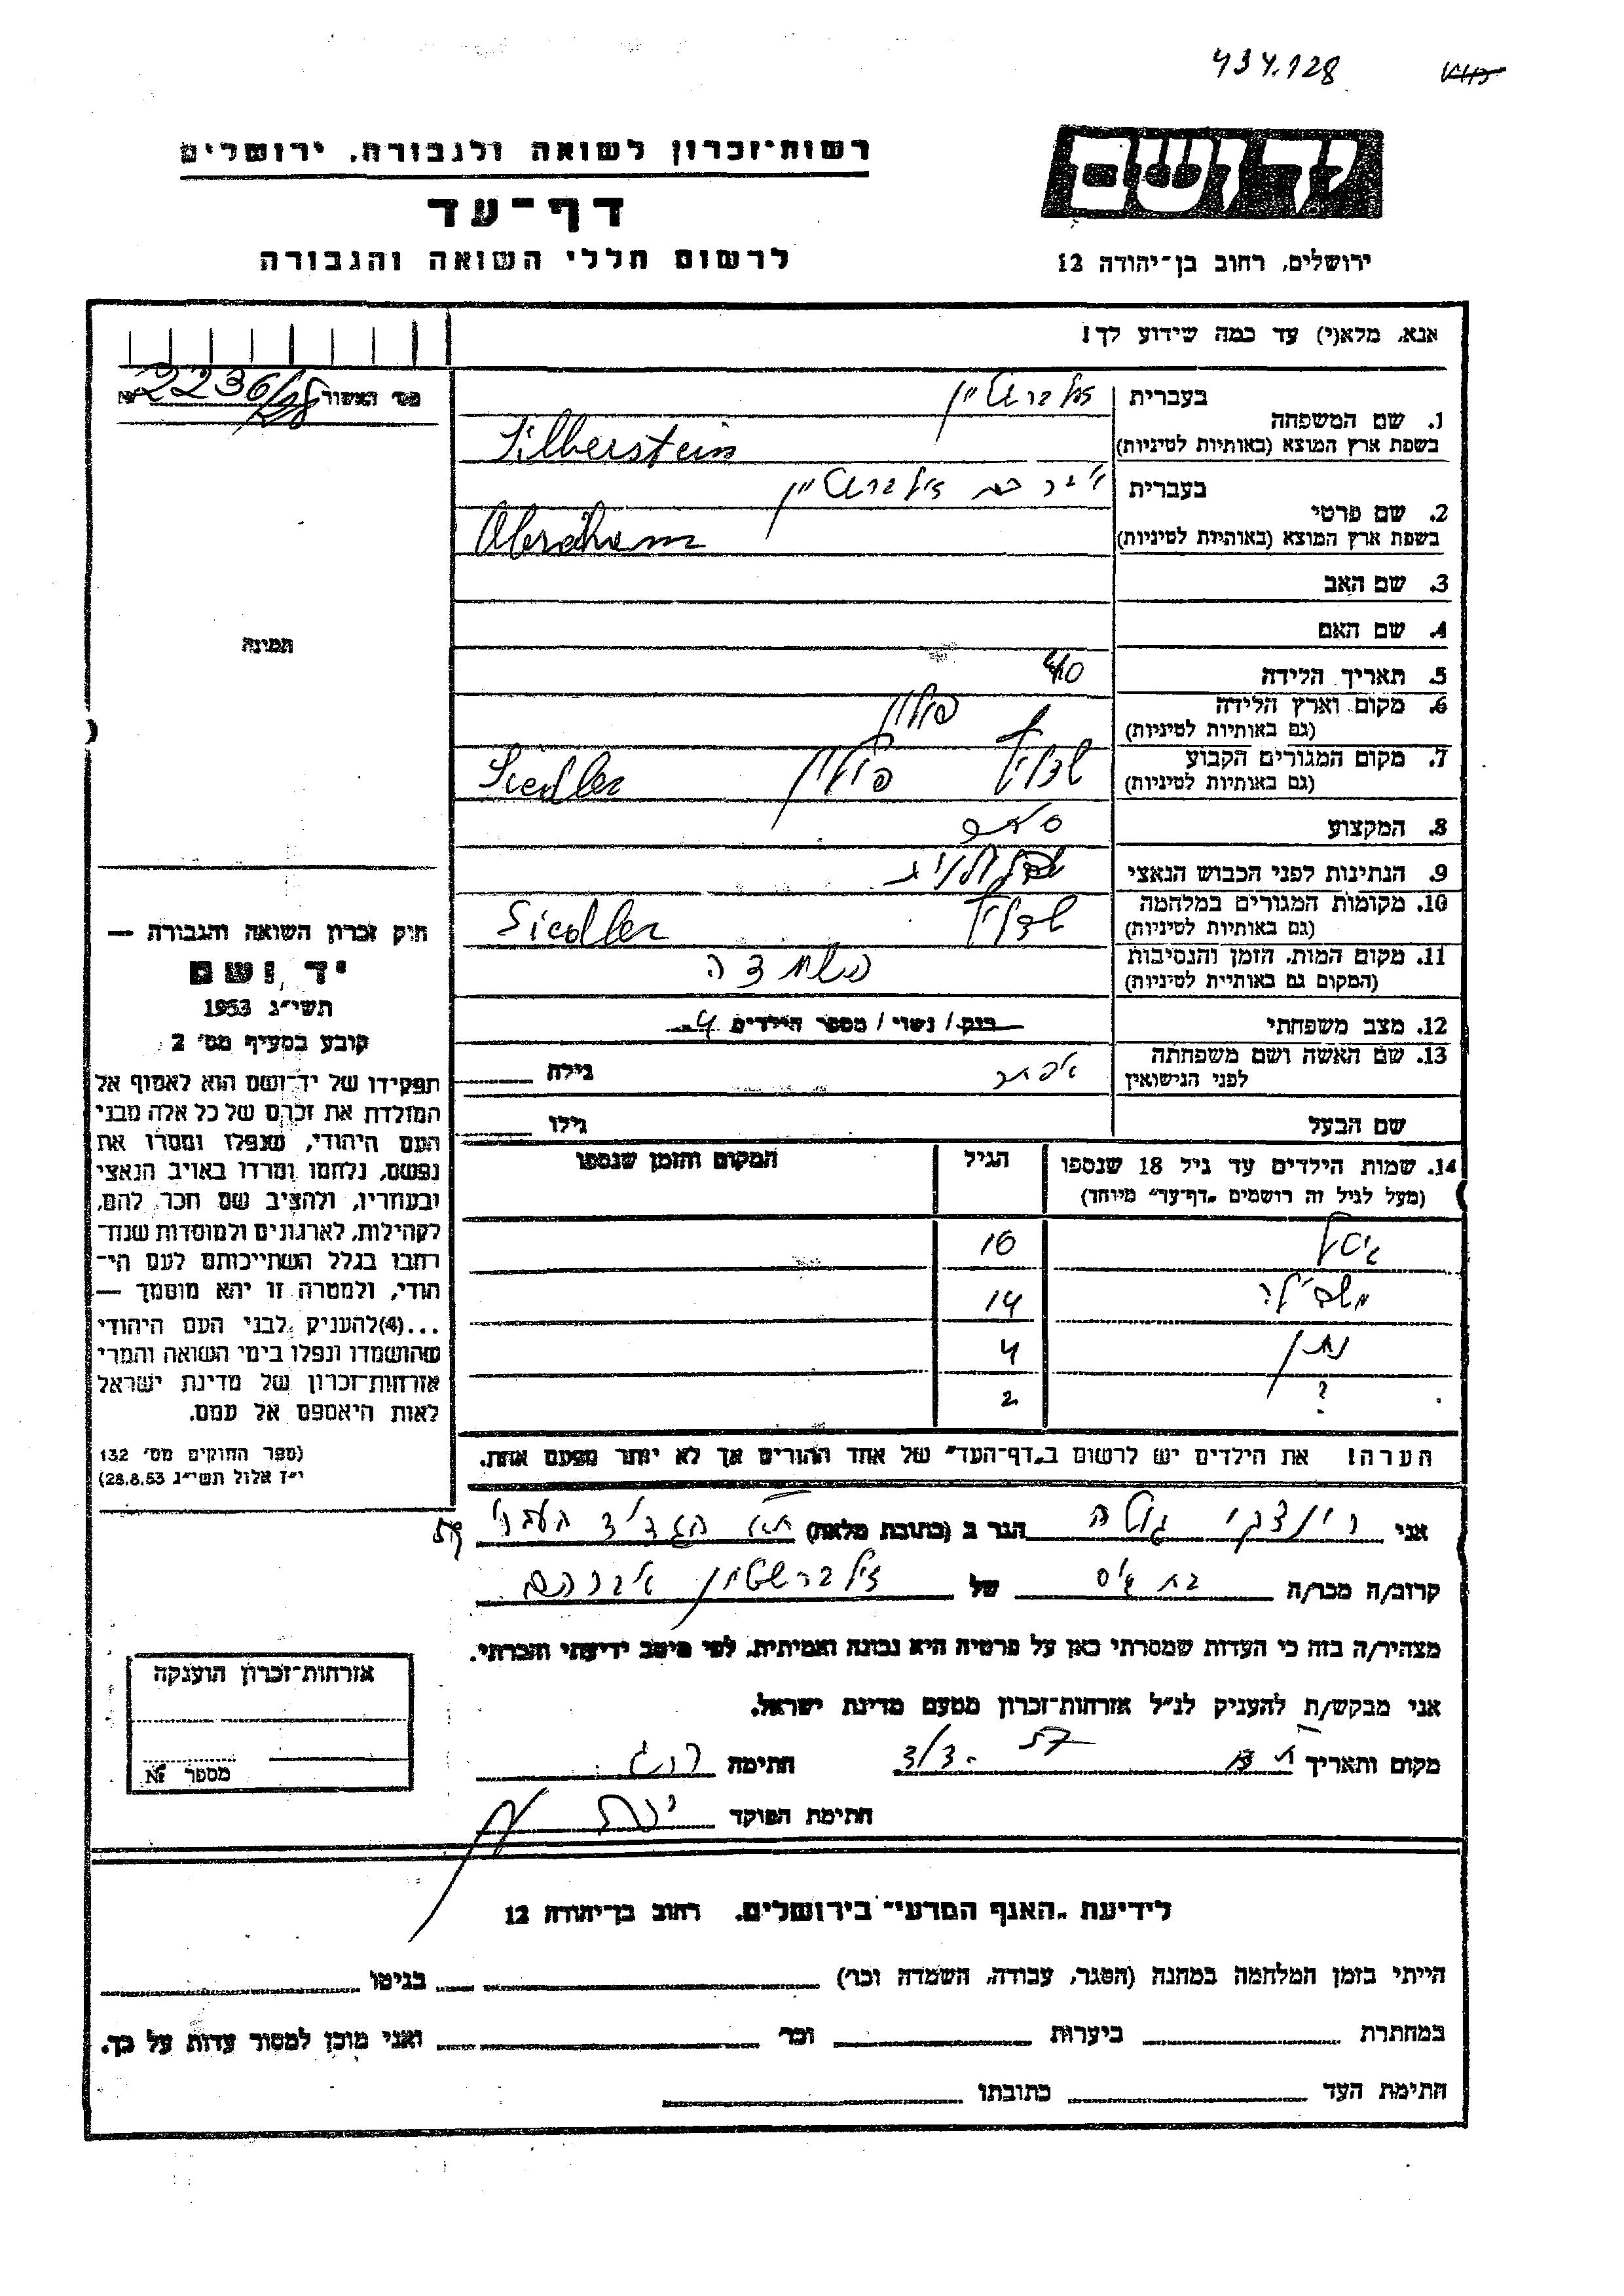 434.128
יד ושם
רשות־זכרון לשואה ולגבורה, ירושלים
דף־עד
לרשום חללי השואה והגבורה
ירושלים, רחוב בן־יהודה 12
אנא, מלא(י) עד כמה שידוע לך!
מס׳ האשור № 2236/
1. שם המשפחה בעברית זילברשטיין
בשפת ארץ המוצא (באותיות לטיניות) Silberstein
2. שם פרטי בעברית אברהם זילברשטיין
בשפת ארץ המוצא (באותיות לטיניות) Abraham
3. שם האב
4. שם האם
תמונה
5. תאריך הלידה 40
6. מקום וארץ הלידה פולין
(גם באותיות לטיניות)
7. מקום המגורים הקבוע פולין
(גם באותיות לטיניות) Siedlec
8. המקצוע סוחר
9. הנתינות לפני הכבוש הנאצי
10. מקומות המגורים במלחמה
(גם באותיות לטיניות) Siedlec
11. מקום המות, הזמן והנסיבות
(המקום גם באותיות לטיניות)
12. מצב משפחתי רווק / נשוי / מספר הילדים 4
13. שם האשה ושם משפחתה אסתר גילה
לפני הנישואין
שם הבעל גילו
14. שמות הילדים עד גיל 18 שנספו הגיל המקום והזמן שנספו
(מעל לגיל זה רושמים „דף־עד״ מיוחד)
16
14
נתן 4
? 2
הערה! את הילדים יש לרשום ב„דף־העד״ של אחד ההורים אך לא יותר מפעם אחת.
חוק זכרון השואה והגבורה —
יד ושם
תשי״ג 1953
קובע בסעיף מס׳ 2
תפקידו של יד־ושם הוא לאסוף אל
המולדת את זכרם של כל אלה מבני
העם היהודי, שנפלו ומסרו את
נפשם, נלחמו ומרדו באויב הנאצי
ובעוזריו, ולהציב שם וזכר להם,
לקהילות, לארגונים ולמוסדות שנח־
רבו בגלל השתייכותם לעם הי־
הודי, ולמטרה זו יהא מוסמך —
...(4)להעניק לבני העם היהודי
שהושמדו ונפלו בימי השואה והמרי
אזרחות־זכרון של מדינת ישראל
לאות היאספם אל עמם.
(ספר החוקים מס׳ 132
י״ז אלול תשי״ג 28.8.53)
אני גולה הגר ב (כתובת מלאה) ת״א
קרוב/ה מכר/ה של זילברשטיין אברהם
מצהיר/ה בזה כי העדות שמסרתי כאן על פרטיה היא נכונה ואמיתית, לפי מיטב ידיעתי והכרתי.
אני מבקש/ת להעניק לנ״ל אזרחות־זכרון מטעם מדינת ישראל.
מקום ותאריך ת״א 3/3. 57 חתימה
חתימת הפוקד
אזרחות־זכרון הוענקה
מספר №
לידיעת „האגף המדעי״ בירושלים, רחוב בן־יהודה 12
הייתי בזמן המלחמה במחנה (הסגר, עבודה, השמדה וכו׳) בגיטו
במחתרת ביערות וכו׳ ואני מוכן למסור עדות על כך.
חתימת העד כתובתו